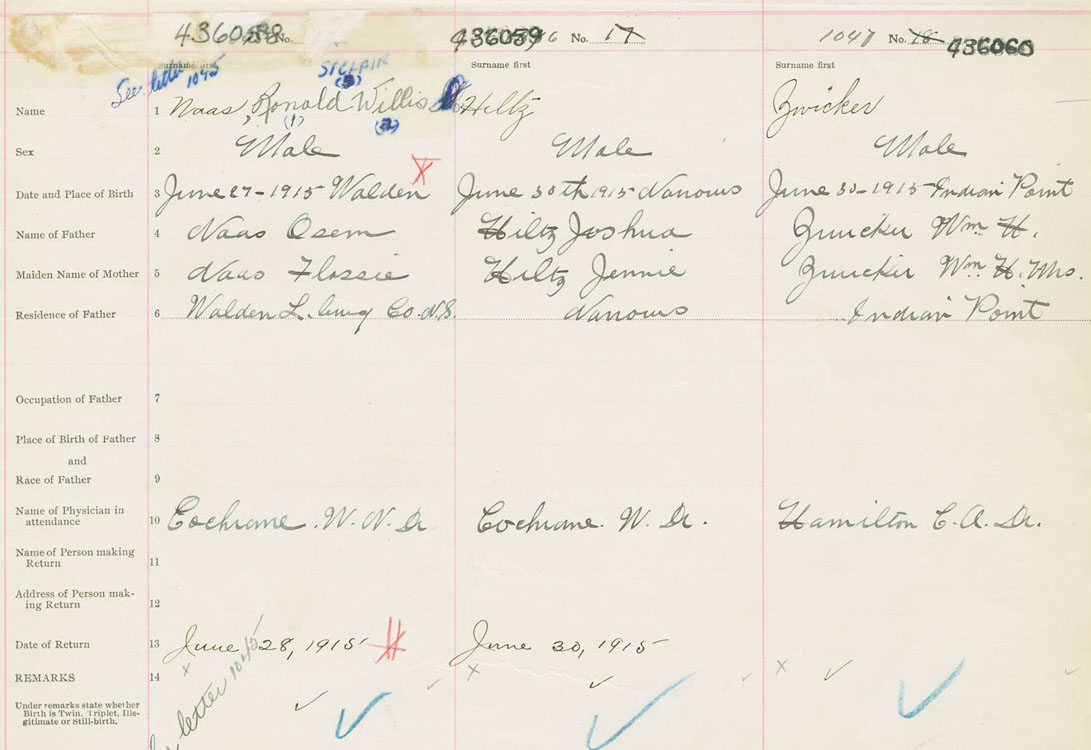 436058 No. 436059 46 No. 17 1047 No. 18 436060
Surname first STCLAIR Surname first Surname first
See letter 1045 (3)
Name 1 Naas, Ronald Willis Hiltz Zwicker
(1) (2)
Sex 2 Male Male Male
Date and Place of Birth 3 June 27-1915 Walden X June 30th 1915 Narrows June 30-1915 Indian Point
Name of Father 4 Naas Osem Hiltz Joshua Zwicker Wm. H.
Maiden Name of Mother 5 Naas Flossie Hiltz Jennie Zwicker Wm. H. Mrs.
Residence of Father 6 Walden L.burg Co. N.S. Narrows Indian Point
Occupation of Father 7
Place of Birth of Father 8
and
Race of Father 9
Name of Physician in
attendance 10 Cochrane. W. N. Dr. Cochrane. W. Dr. Hamilton C. A. Dr.
Name of Person making
Return 11
Address of Person mak-
ing Return 12
Date of Return 13 June 28, 1915 June 30, 1915
REMARKS 14 x x x
letter 1045
Under remarks state whether
Birth is Twin. Triplet, Ille-
gitimate or Still-birth.